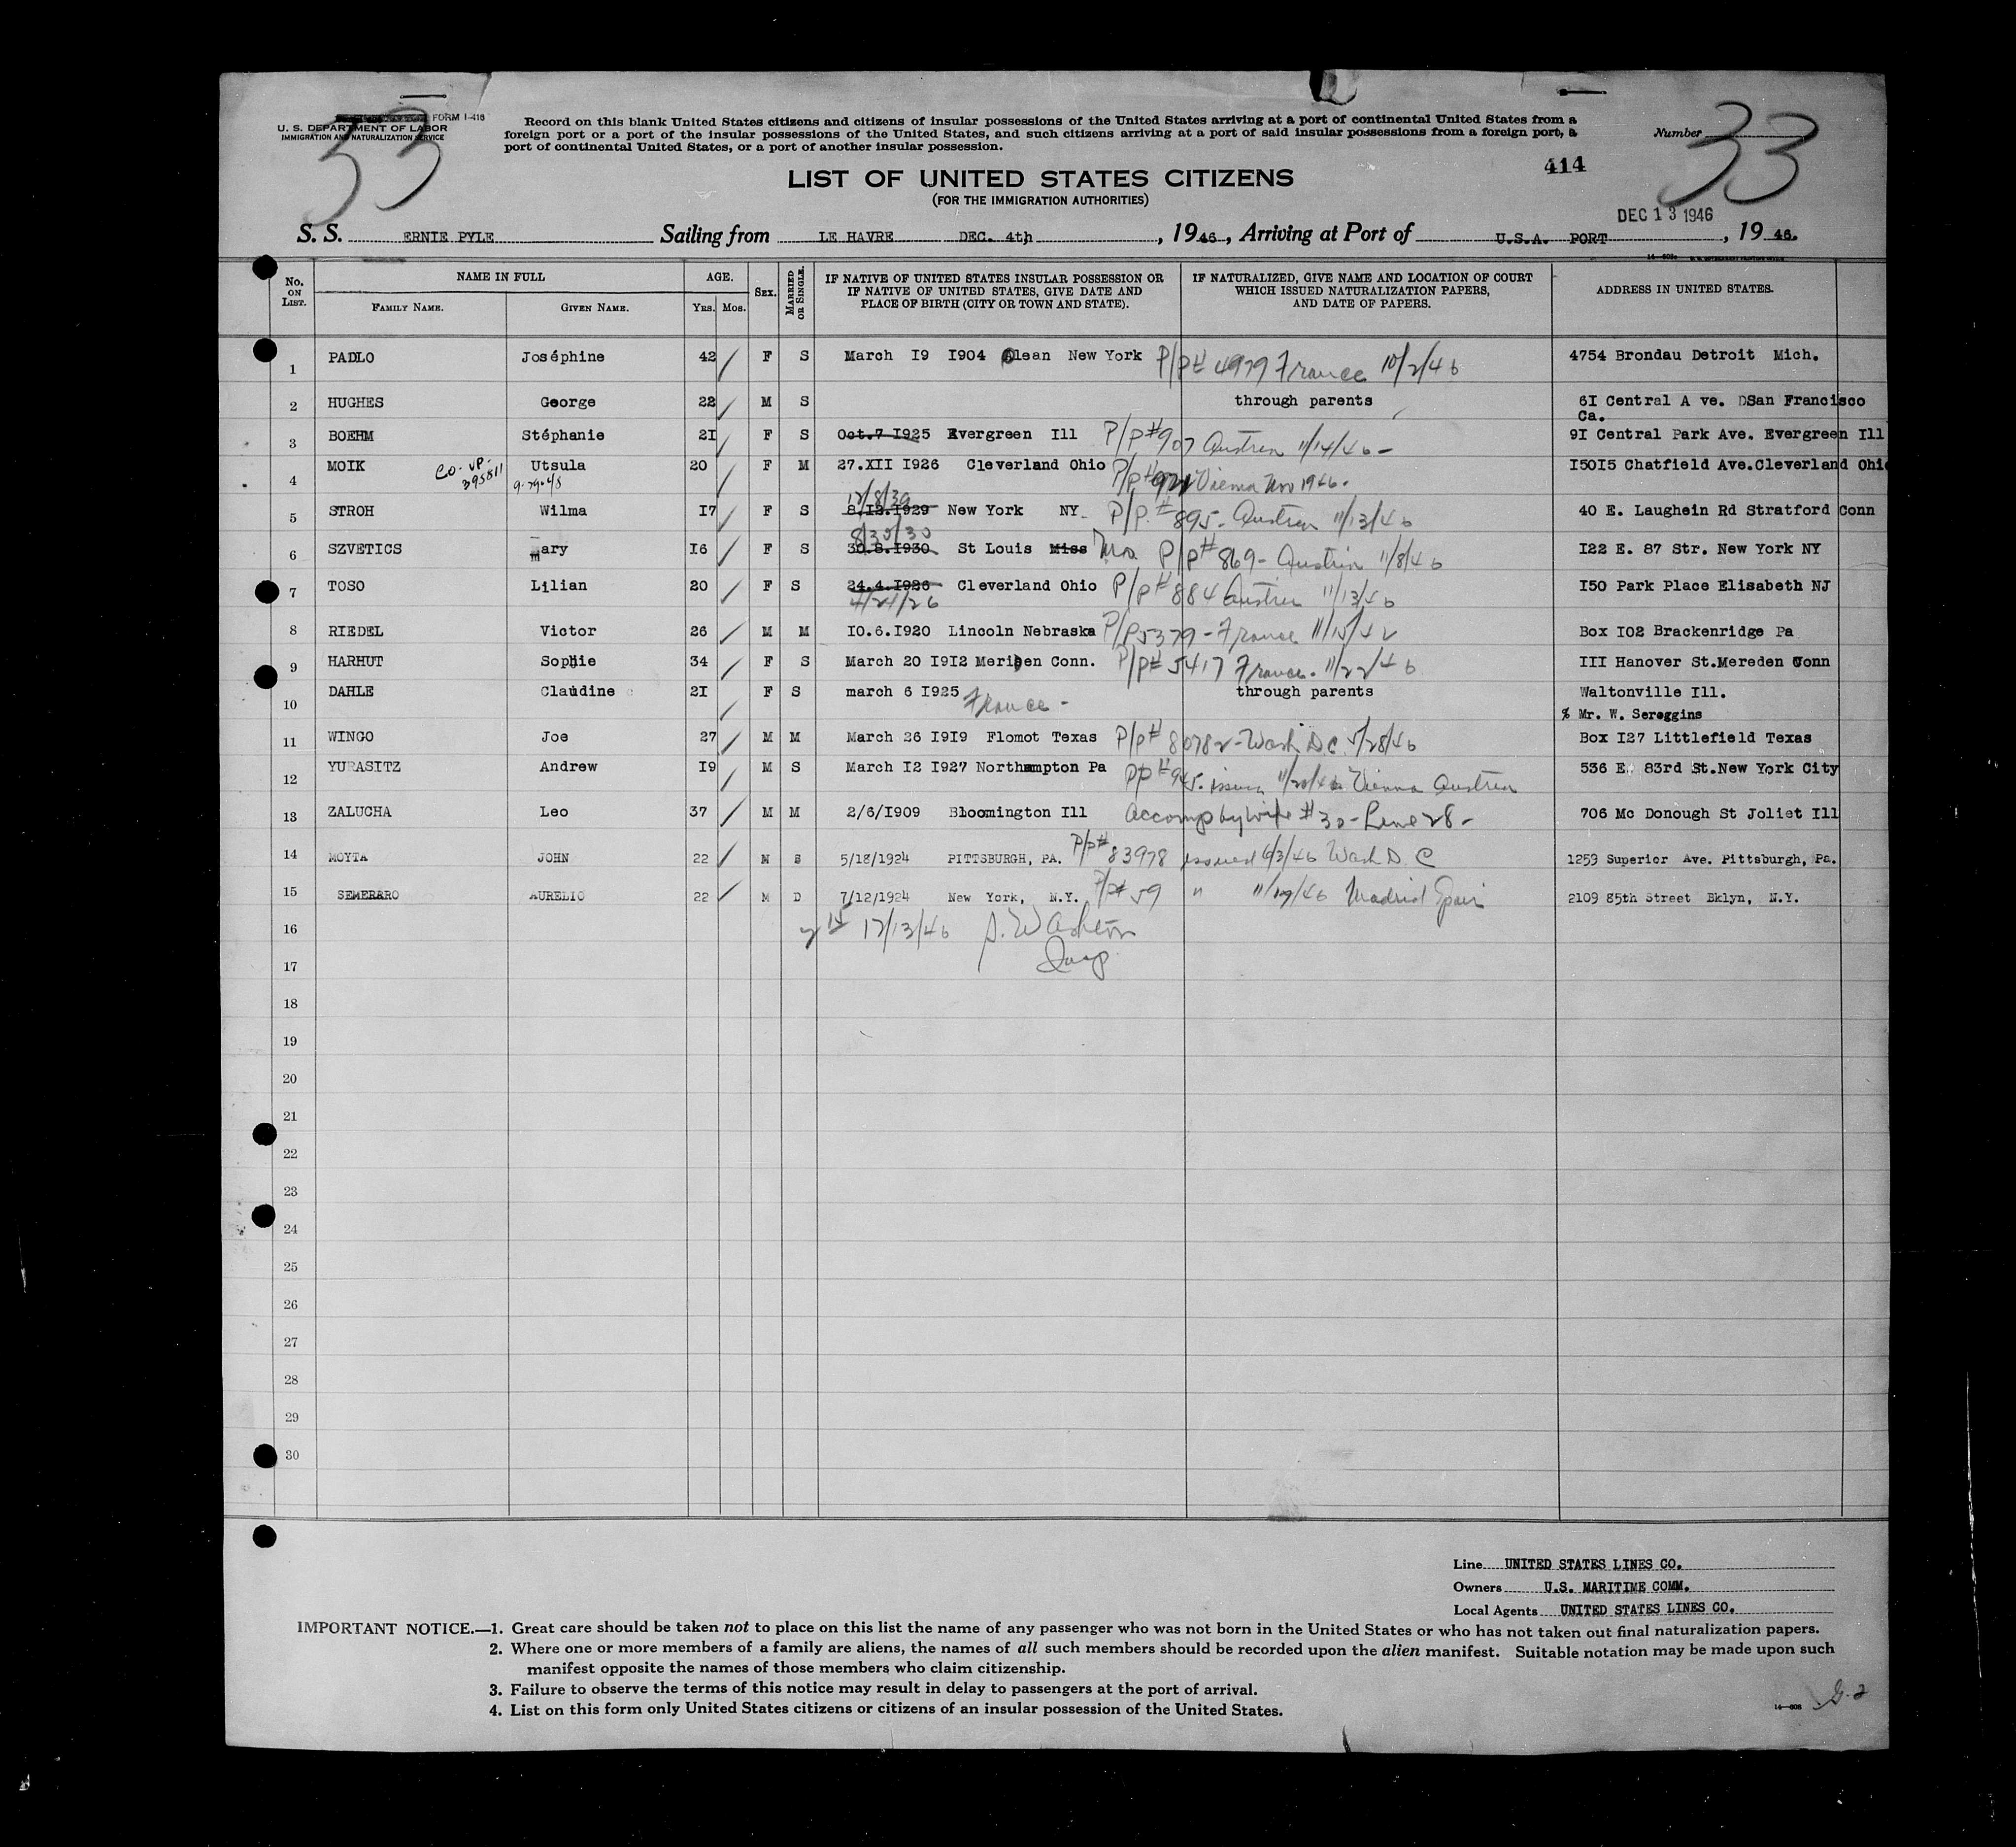 FORM I-416
U. S. DEPARTMENT OF LABOR
IMMIGRATION AND NATURALIZATION SERVICE
33
Record on this blank United States citizens and citizens of insular possessions of the United States arriving at a port of continental United States from a
foreign port or a port of the insular possessions of the United States, and such citizens arriving at a port of said insular possessions from a foreign port, a
port of continental United States, or a port of another insular possession.
Number 33
414
LIST OF UNITED STATES CITIZENS
(FOR THE IMMIGRATION AUTHORITIES)
DEC 13 1946
S. S. ERNIE PYLE Sailing from LE HAVRE DEC. 4th, 1946, Arriving at Port of U.S.A. PORT, 19 46.
No. ON LIST. NAME IN FULL FAMILY NAME. GIVEN NAME. AGE. YRS. MOS. SEX. MARRIED OR SINGLE. IF NATIVE OF UNITED STATES INSULAR POSSESSION OR IF NATIVE OF UNITED STATES, GIVE DATE AND PLACE OF BIRTH (CITY OR TOWN AND STATE). IF NATURALIZED, GIVE NAME AND LOCATION OF COURT WHICH ISSUED NATURALIZATION PAPERS, AND DATE OF PAPERS. ADDRESS IN UNITED STATES.
1 PADLO Joséphine 42 F S March I9 I904 Olean New York P/P# 4979 France 10/2/46 4754 Brondau Detroit Mich.
2 HUGHES George 22 M S through parents 6I Central A ve. DSan Francisco
Ca.
3 BOEHM Stéphanie 2I F S Oct.7 I925 Evergreen Ill P/P#907 Austria 11/14/46 - 9I Central Park Ave. Evergreen Ill
4 MOIK CO-VP- 395811 9-29-48 Utsula 20 F M 27.XII I926 Cleverland Ohio P/P# Vienna Nov 1946. I50I5 Chatfield Ave.Cleverland Ohi
12/8/39
5 STROH Wilma I7 F S 8.I2.I929 New York NY P/P.# 895- Austria 11/13/46 40 E. Laughein Rd Stratford Conn
8/30/30
6 SZVETICS mary I6 F S 30.8.I930 St Louis Miss Mo. P/P# 869- Austria 11/8/46 I22 E. 87 Str. New York NY
7 TOSO Lilian 20 F S 24.4.I926 Cleverland Ohio P/P# 884 Austria 11/13/46 I50 Park Place Elisabeth NJ
4/24/26
8 RIEDEL Victor 26 M M I0.6.I920 Lincoln Nebraska P/P5379- France 11/15/42 Box I02 Brackenridge Pa
9 HARHUT Sophie 34 F S March 20 I9I2 Meriden Conn. P/P# 5417 France. 11/22/46 III Hanover St.Mereden Conn
10 DAHLE Claudine 2I F S march 6 I925 France - through parents Waltonville Ill.
% Mr. W. Sereggins
11 WINGO Joe 27 M M March 26 I9I9 Flomot Texas P/P# 80782- Wash D.C. 5/28/46 Box I27 Littlefield Texas
12 YURASITZ Andrew I9 M S March I2 I927 Northampton Pa PP#945. issued 11/20/46 Vienna Austria 536 E. 83rd St.New York City
13 ZALUCHA Leo 37 M M 2/6/I909 Bloomington Ill Accomp by wife #30- Line 28- 706 Mc Donough St Joliet Ill
14 MOYTA JOHN 22 M S 5/18/1924 PITTSBURGH, PA. P/P# 83978 issued 6/3/46 Wash D. C 1259 Superior Ave. Pittsburgh, Pa.
15 SEMERARO AURELIO 22 M D 7/12/1924 New York, N.Y. P/P# 59 " 11/29/46 Madrid Spain 2109 85th Street Bklyn, N.Y.
16 12/13/46
Insp
17
18
19
20
21
22
23
24
25
26
27
28
29
30
Line UNITED STATES LINES CO.
Owners U.S. MARITIME COMM.
Local Agents UNITED STATES LINES CO.
IMPORTANT NOTICE.—1. Great care should be taken not to place on this list the name of any passenger who was not born in the United States or who has not taken out final naturalization papers.
2. Where one or more members of a family are aliens, the names of all such members should be recorded upon the alien manifest. Suitable notation may be made upon such
manifest opposite the names of those members who claim citizenship.
3. Failure to observe the terms of this notice may result in delay to passengers at the port of arrival.
4. List on this form only United States citizens or citizens of an insular possession of the United States.